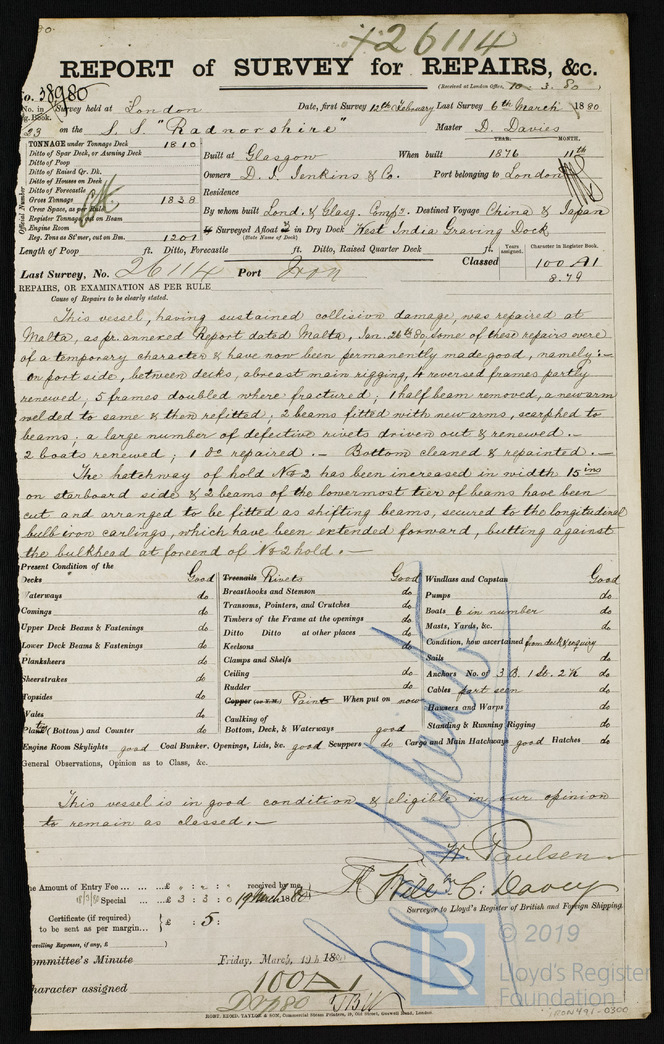 +26114
REPORT of SURVEY for REPAIRS, &c.
(Received at London Office, 10 . 3 . 80 )
No. 38980
No. in Survey held at London Date, first Survey 12th February Last Survey 6th March 1880
g. Book.
23 on the S. S. "Radnorshire" Master D. Davies
TONNAGE under Tonnage Deck 1810
Ditto of Spar Deck, or Awning Deck
Ditto of Poop
Ditto of Raised Qr. Dk.
Ditto of Houses on Deck
Ditto of Forecastle
Gross Tonnage 1838
Crew Space, as per Rule
Register Tonnage, cut on Beam
Engine Room
Reg. Tons as St'mer, cut on Bm. 1201
Official Number
YEAR. MONTH.
Built at Glasgow When built 1876 11th
Owners D. J. Jenkins & Co. Port belonging to London
Residence
By whom built Lond. & Glasg. Compy. Destined Voyage China & Japan
Surveyed Afloat or in Dry Dock West India Graving Dock
(State Name of Dock)
Length of Poop ft. Ditto, Forecastle ft. Ditto, Raised Quarter Deck ft.
Years assigned. Character in Register Book.
Classed 100 A1
8.79
Last Survey, No. 26114 Port Iron
REPAIRS, OR EXAMINATION AS PER RULE
Cause of Repairs to be clearly stated.
This vessel, having sustained collision damage, was repaired at
Malta, as pr. annexed Report dated Malta, Jan. 26th 80, some of these repairs were
of a temporary character & have now been permanently made good, namely:-
On port side, between decks, abreast main rigging, 4 reversed frames partly
renewed, 5 frames doubled where fractured; 1 half beam removed, a new arm
welded to same & then refitted; 2 beams fitted with new arms, scarphed to
beams; a large number of defective rivets driven out & renewed.-
2 boats renewed; 1 do repaired.- Bottom cleaned & repainted.-
The hatchway of hold No 2 has been increased in width 15 ins
on starboard side & 2 beams of the lowermost tier of beams have been
cut and arranged to be fitted as shifting beams, secured to the longitudinal
bulb iron carlings, which have been extended forward, butting against
the bulkhead at forend of No 2 hold.-
Present Condition of the
Decks Good
Waterways do
Comings do
Upper Deck Beams & Fastenings do
Lower Deck Beams & Fastenings do
Planksheers do
Sheerstrakes do
Topsides do
Wales do
Plate (Bottom) and Counter do
Treenails Rivets Good
Breasthooks and Stemson do
Transoms, Pointers, and Crutches do
Timbers of the Frame at the openings do
Ditto Ditto at other places do
Keelsons do
Clamps and Shelfs do
Ceiling do
Rudder do
Copper (or Y.M.) Paint When put on now
Caulking of
Bottom, Deck, & Waterways good
Windlass and Capstan Good
Pumps do
Boats 6 in number do
Masts, Yards, &c. do
Condition, how ascertained from deck & enquiry
Sails do
Anchors No. of 3 B. 1 St. 2 K do
Cables part seen do
Hawsers and Warps do
Standing & Running Rigging do
Engine Room Skylights good Coal Bunker, Openings, Lids, &c. good Scuppers do Cargo and Main Hatchways good Hatches do
General Observations, Opinion as to Class, &c.
This vessel is in good condition & eligible in our opinion
to remain as classed.-
W. Paulsen
Willm. C. Davey
Surveyor to Lloyd's Register of British and Foreign Shipping.
he Amount of Entry Fee ... ... £ : : received by me,
18/3/80 Special ... £ 3 : 3 : 0 19 March 1880
Certificate (if required) £ : 5 :
to be sent as per margin...
ravelling Expenses, if any, £ )
ommittee's Minute Friday, March, 19th 1880
haracter assigned 100 A 1
ROBT. EDMD. TAYLOR & SON, Commercial Steam Printers, 19, Old Street, Goswell Road, London.
LR
© 2019
Lloyd's Register
Foundation
IRON491-0300